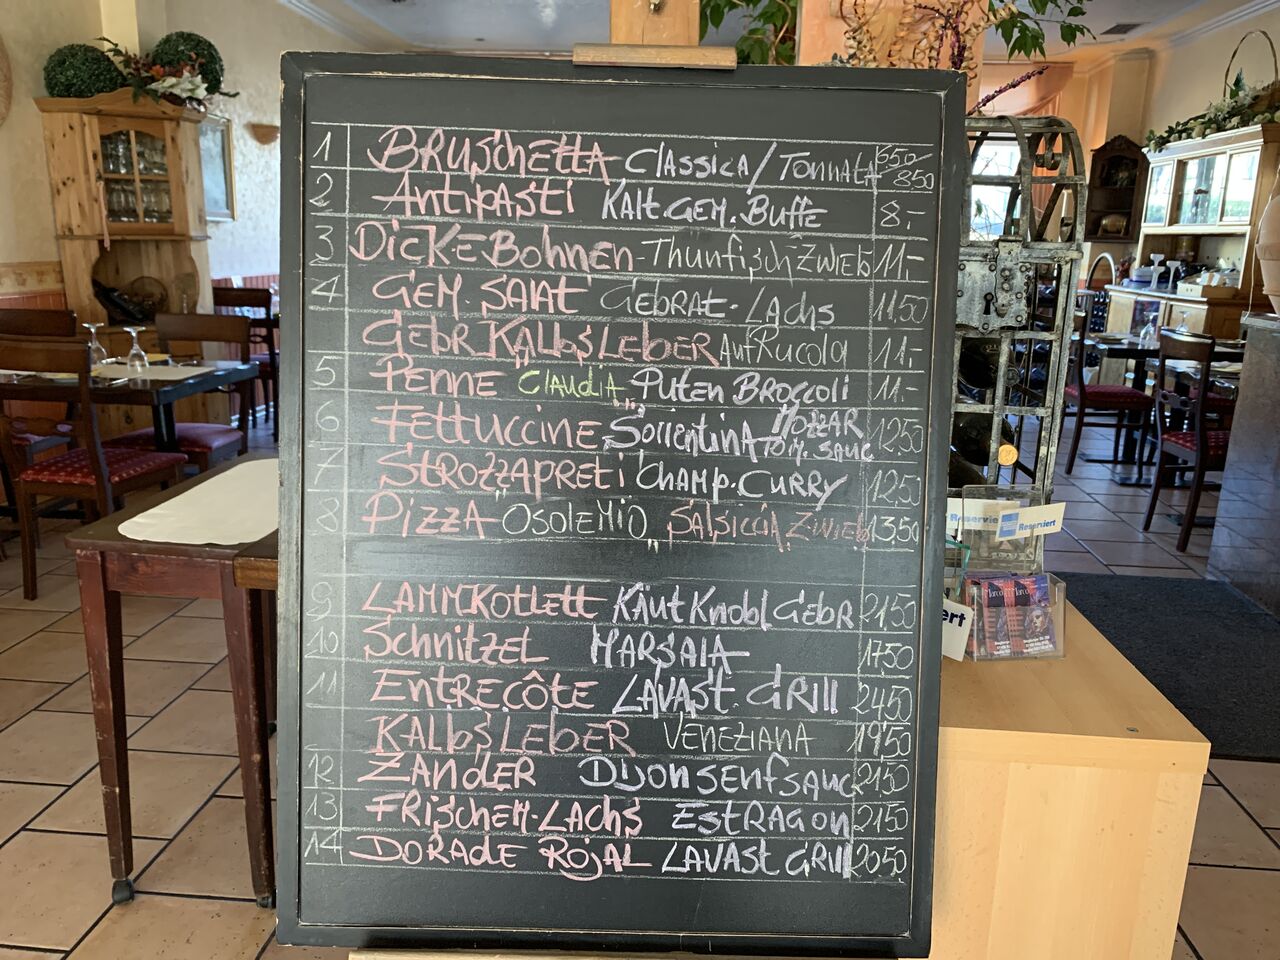 1 BRUSCHETTA CLASSICA / TONNATA 6,50/8,50
2 ANTIPASTI KALT. GEM. BUFFE 8,-
3 DICKE BOHNEN - THUNFISCH ZWIEB 11,-
4 GEM. SALAT GEBRAT. LACHS 11,50
GEBR KALBSLEBER AUF RUCOLA 11,-
5 PENNE "CLAUDIA" PUTEN BROCCOLI 11,-
6 FETTUCCINE "SORRENTINA" MOZZAR TOM. SAUC 12,50
7 STROZZAPRETI CHAMP. CURRY 12,50
8 PIZZA "OSOLEMIO" SALSICCIA ZWIEB 13,50
9 LAMMKOTLETT KÄUT KNOBL GEBR 21,50
10 SCHNITZEL MARSALA 17,50
11 ENTRECÔTE LAVAST. GRILL 24,50
KALBSLEBER VENEZIANA 19,50
12 ZANDER DIJONSENFSAUC 21,50
13 FRISCHEM-LACHS ESTRAGON 21,50
14 DORADE ROJAL LAVAST GRILL 20,50
Reserviert
Marco Marco